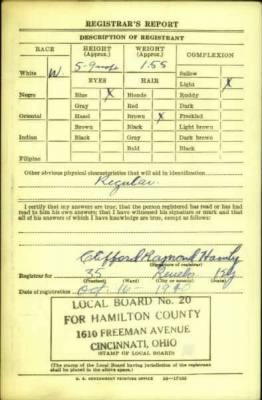 REGISTRAR'S REPORT
DESCRIPTION OF REGISTRANT
RACE HEIGHT (Approx.) WEIGHT (Approx.) COMPLEXION
White W. 5-9 155 Sallow
EYES HAIR Light X
Negro Blue X Blonde Ruddy
Gray Red Dark
Oriental Hazel Brown X Freckled
Brown Black Light brown
Indian Black Gray Dark brown
Bald Black
Filipino
Other obvious physical characteristics that will aid in identification
Regular
I certify that my answers are true; that the person registered has read or has had
read to him his own answers; that I have witnessed his signature or mark and that
all of his answers of which I have knowledge are true, except as follows:
Clifford Raymond
(Signature of registrar)
Registrar for 35 Ky
(Precinct) (Ward) (City or county) (State)
Date of registration Oct 16-1940
LOCAL BOARD No. 20
FOR HAMILTON COUNTY
1610 FREEMAN AVENUE
CINCINNATI, OHIO
(STAMP OF LOCAL BOARD)
(The stamp of the Local Board having jurisdiction of the registrant
shall be placed in the above space.)
U. S. GOVERNMENT PRINTING OFFICE